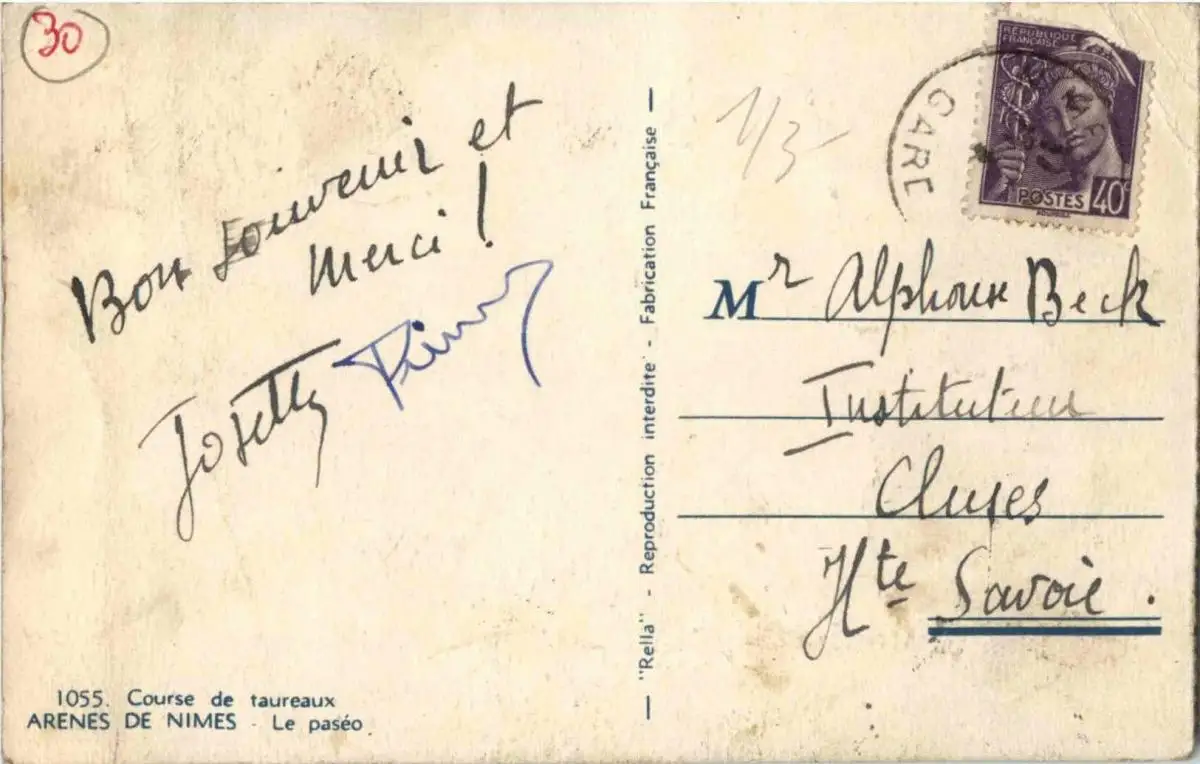 30
Bon souvenir et
Merci !
Josette
1055. Course de taureaux
ARENES DE NIMES - Le paséo
— "Rella" - Reproduction interdite - Fabrication Française —
1/3-
GARE
RÉPUBLIQUE
FRANÇAISE
POSTES 40c
Mr Alphonse Beck
Instituteur
Cluses
Hte Savoie .